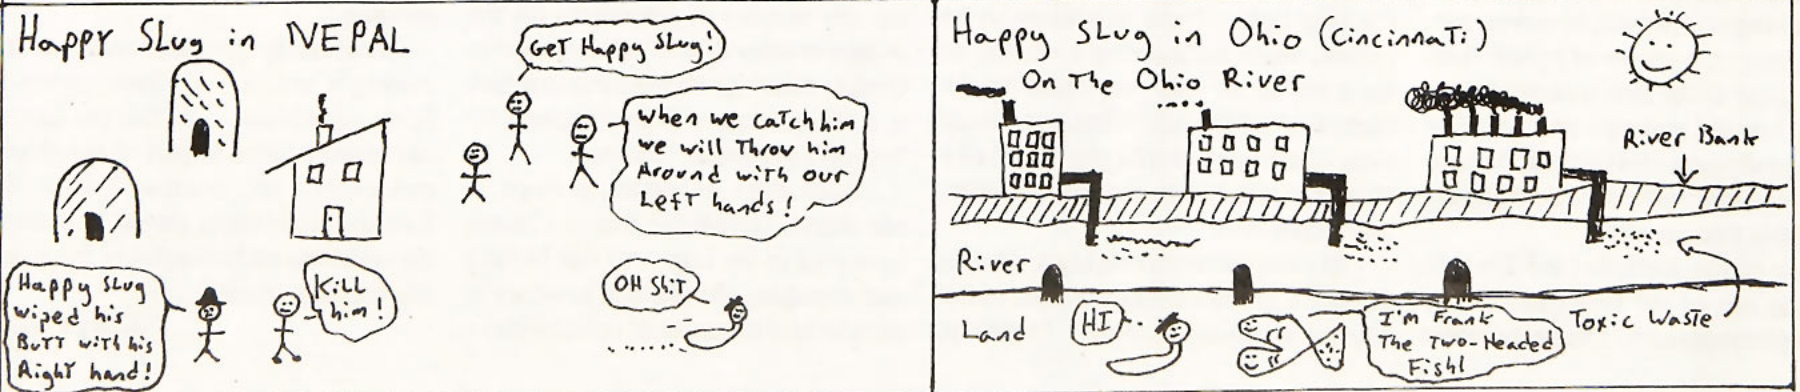 Happy Slug in NEPAL
Get Happy Slug!
when we catch him
we will Throw him
Around with our
Left hands!
Happy Slug
wiped his
Butt with his
Right hand!
Kill
him!
OH Shit
Happy Slug in Ohio (Cincinnati)
On The Ohio River
River Bank
River
Land
HI
I'm Frank
The Two-Headed
Fish!
Toxic Waste